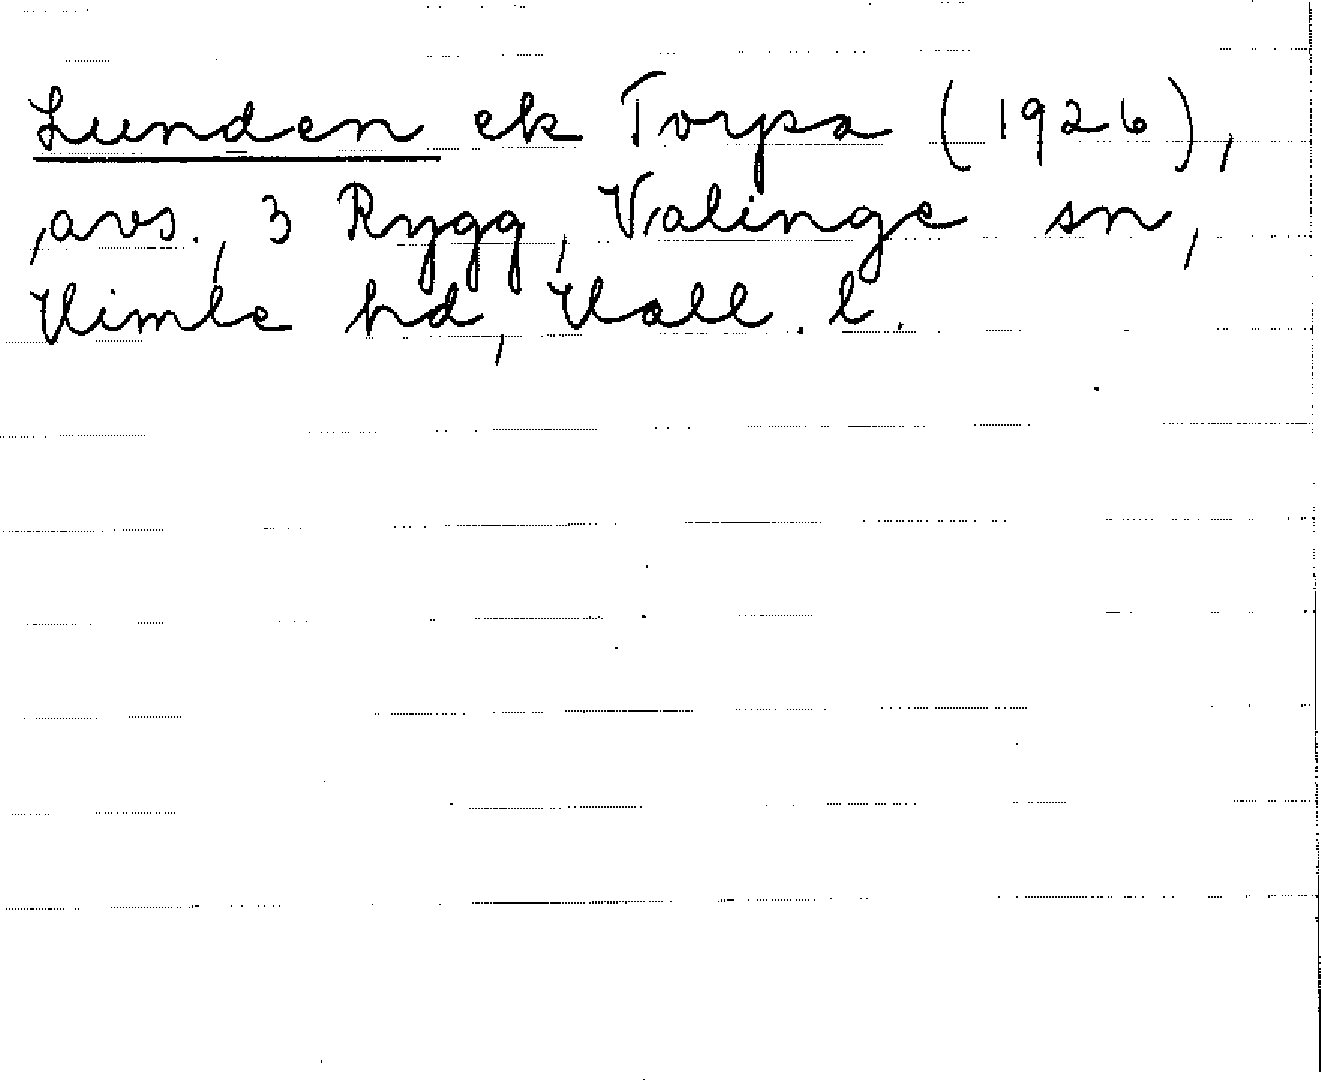 Lunden ek Torpa (1926),
avs., 3 Rygg, Valinge sn,
Himle hd, Hall. l.